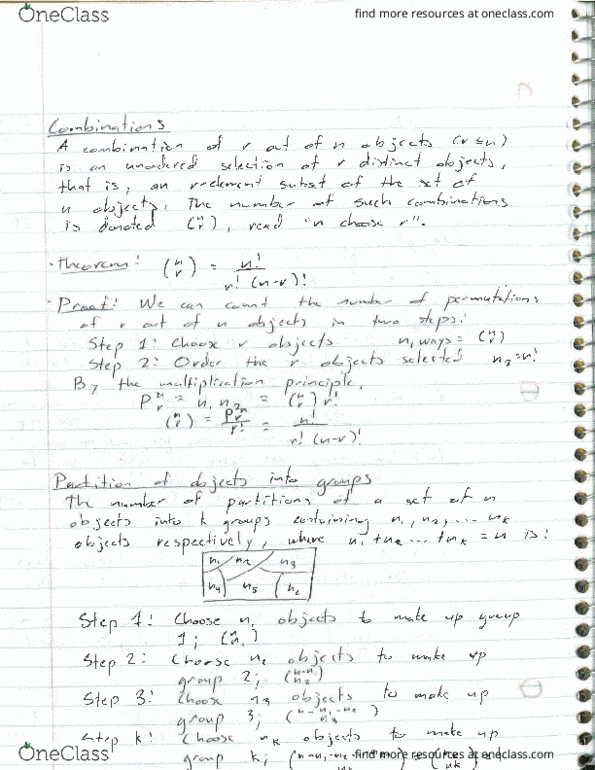 OneClass
find more resources at oneclass.com
Combinations
A combination of r out of n objects (r≤n)
is an unordered selection of r distinct objects,
that is, an r-element subset of the set of
n objects. The number of such combinations
is denoted (n r), read "n choose r".
· Theorem: (n r) = n! / r! (n-r)!
· Proof: We can count the number of permutations
of r out of n objects in two steps:
Step 1: Choose r objects n₁ ways = (n r)
Step 2: Order the r objects selected n₂ = r!
By the multiplication principle,
Pᵣⁿ = n₁ n₂ = (n r) r!
(n r) = Pᵣⁿ / r! = n! / r! (n-r)!
Partition of objects into groups
The number of partitions of a set of n
objects into k groups containing n₁, n₂, ... nₖ
objects respectively, where n₁ + n₂ ... + nₖ = n is:
n₁ n₂ n₃
n₄ n₅
Step 1: Choose n₁ objects to make up group
1; (n n₁)
Step 2: Choose n₂ objects to make up
group 2; (n-n₁ n₂)
Step 3: Choose n₃ objects to make up
group 3; (n-n₁-n₂ n₃)
Step k: Choose nₖ objects to make up
group k;
OneClass
find more resources at oneclass.com